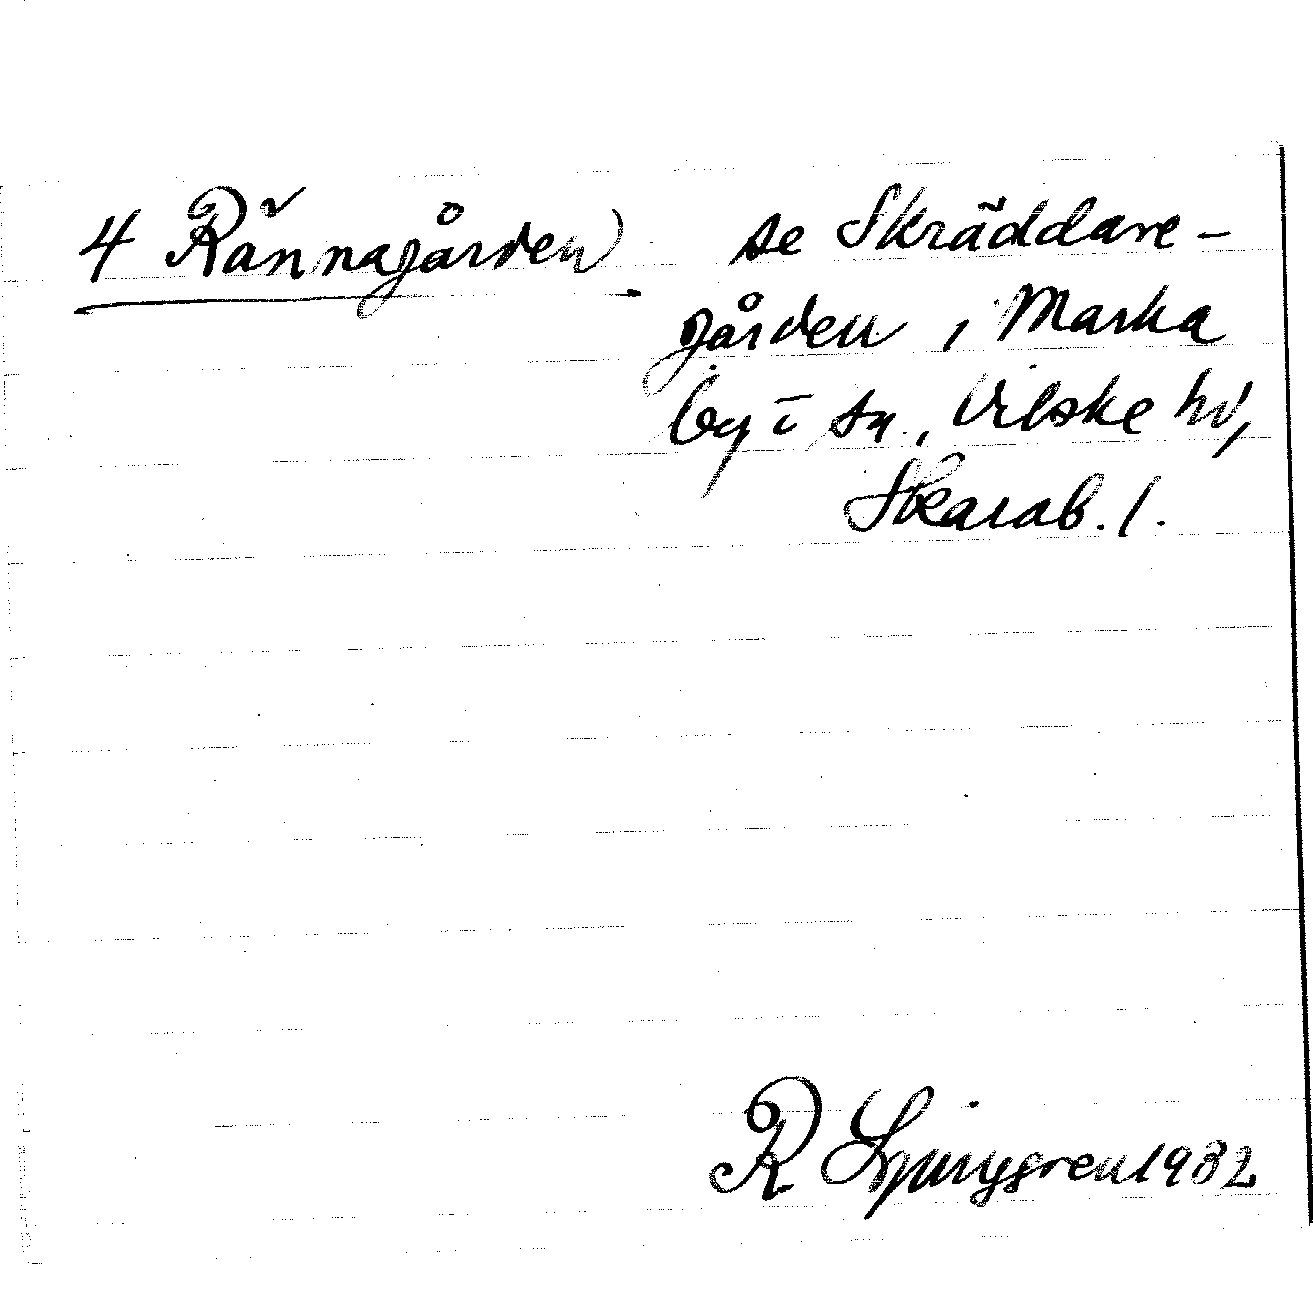 4 Rännagården se Skräddare-
gården i Marka
by i sn., Vilske hd,
Skarab. l.
R Ljunggren 1932